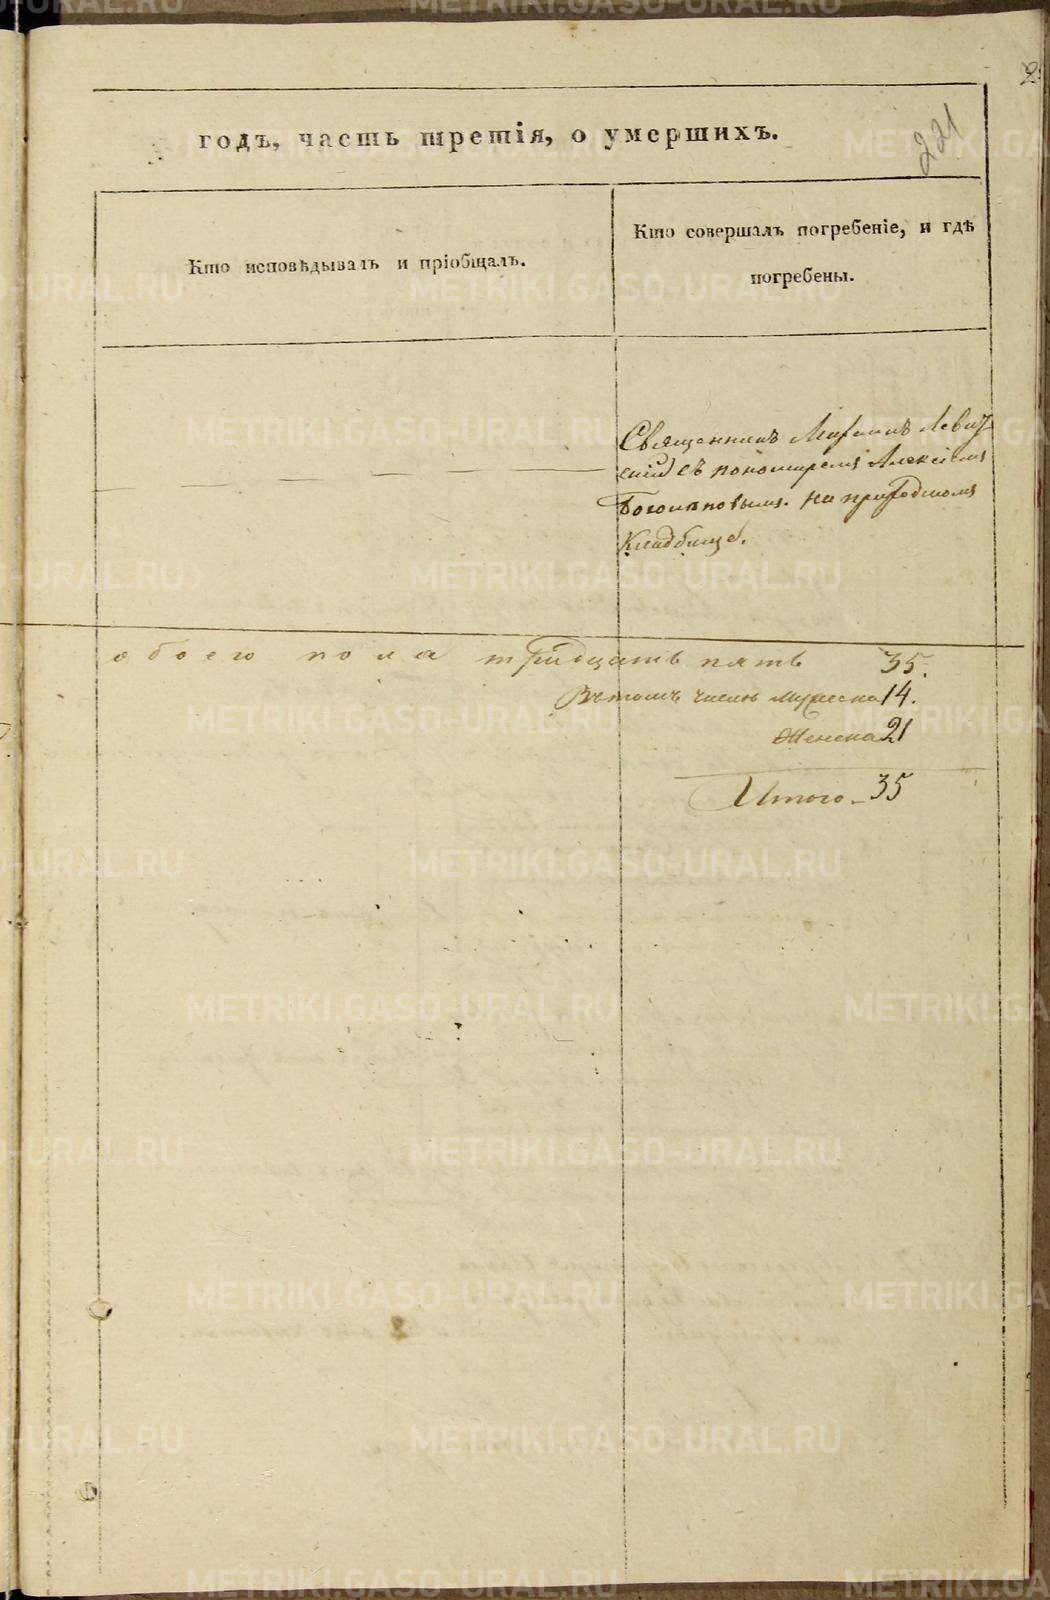 221
годъ, часть третія, о умершихъ.
Кто исповѣдывалъ и пріобщалъ.
Кто совершалъ погребеніе, и гдѣ
погребены.
Священникъ Левит
скій съ пономаремъ Алексіемъ
на приходскомъ
Кладбище.
обоего пола тридцать пять 35.
Въ томъ числѣ мужеска 14.
Женска 21
Итого - 35
METRIKI.GASO-URAL.RU